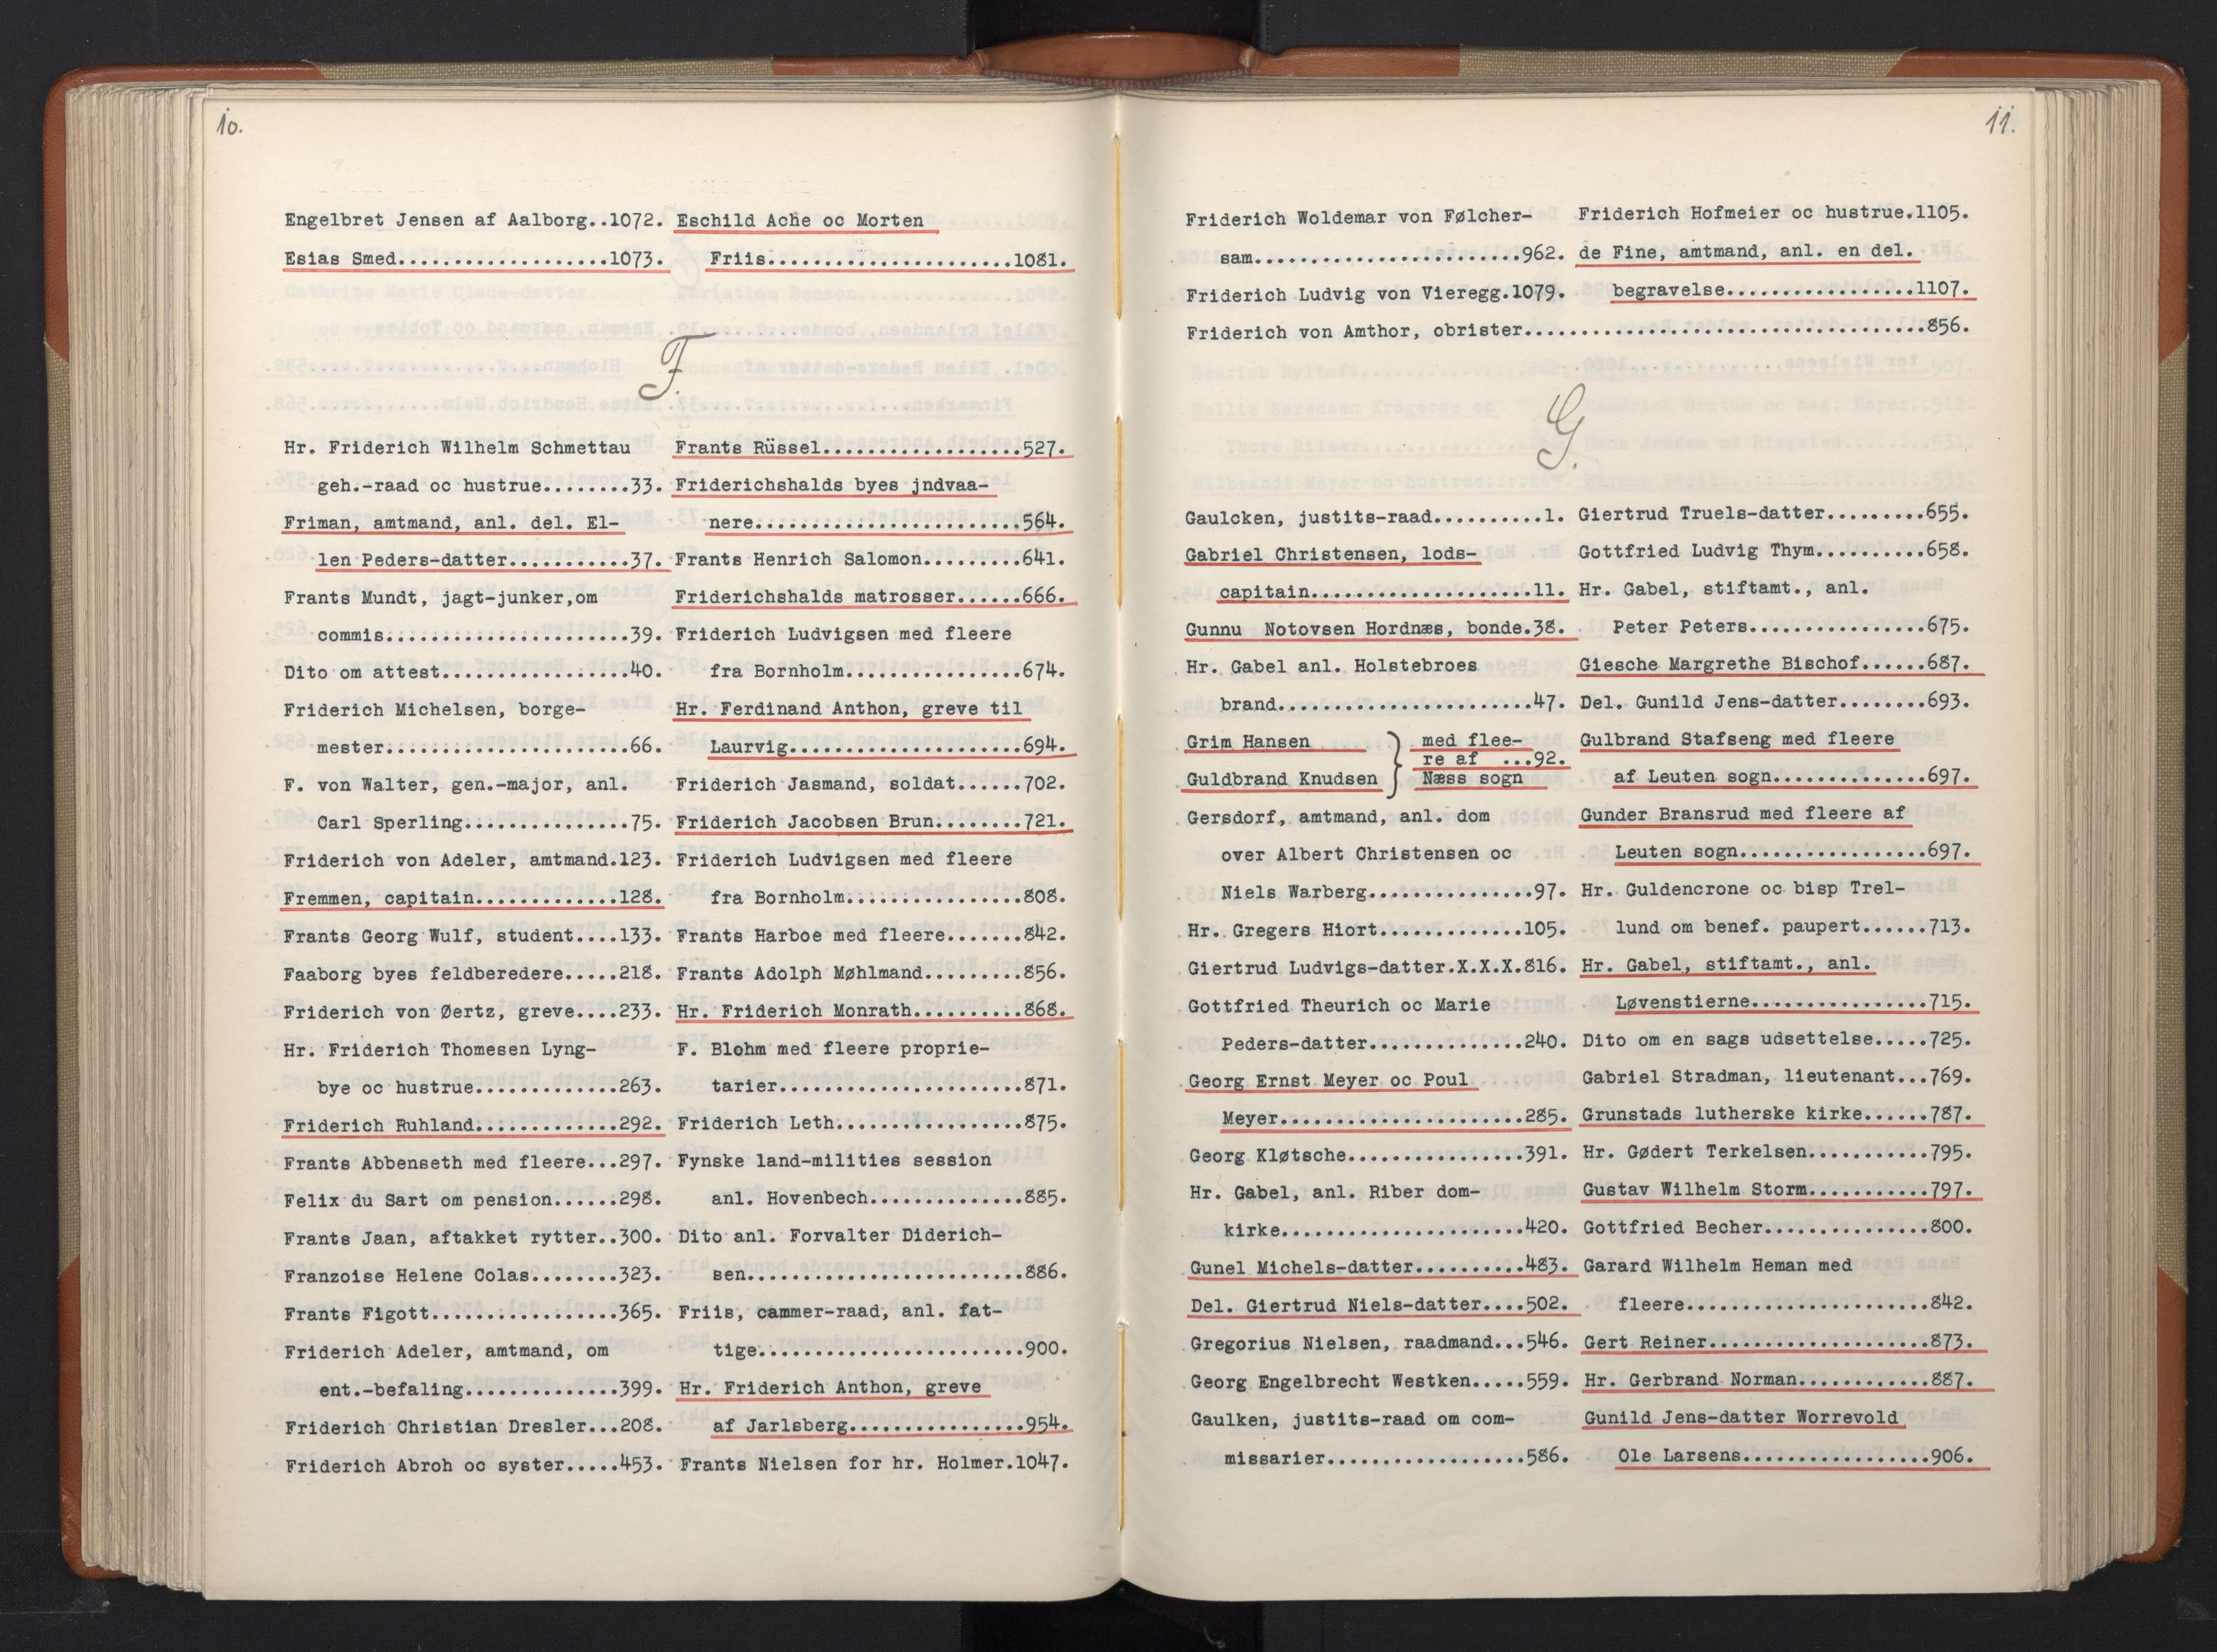 10.
Engelbret Jensen af Aalborg..1072.
Esias Smed...................1073.
Eschild Ache oc Morten
Friis......................1081.
F.
Hr. Friderich Wilhelm Schmettau
geh.-raad oc hustrue........33.
Friman, amtmand, anl. del. El-
len Peders-datter...........37.
Frants Mundt, jagt-junker,om
commis......................39.
Dito om attest.................40.
Friderich Michelsen, borge-
mester......................66.
F. von Walter, gen.-major, anl.
Carl Sperling...............75.
Friderich von Adeler, amtmand.123.
Fremmen, capitain.............128.
Frants Georg Wulf, student....133.
Faaborg byes feldberedere.....218.
Friderich von Øertz, greve....233.
Hr. Friderich Thomesen Lyng-
bye oc hustrue.............263.
Friderich Ruhland.............292.
Frants Abbenseth med fleere...297.
Felix du Sart om pension......298.
Frants Jaan, aftakket rytter..300.
Franzoise Helene Colas........323.
Frants Figott.................365.
Friderich Adeler, amtmand, om
ent.-befaling..............399.
Friderich Christian Dresler...208.
Friderich Abroh oc syster.....453.
Frants Rüssel..................527.
Friderichshalds byes jndvaa-
nere........................564.
Frants Henrich Salomon.........641.
Friderichshalds matrosser......666.
Friderich Ludvigsen med fleere
fra Bornholm................674.
Hr. Ferdinand Anthon, greve til
Laurvig.....................694.
Friderich Jasmand, soldat......702.
Friderich Jacobsen Brun........721.
Friderich Ludvigsen med fleere
fra Bornholm................808.
Frants Harboe med fleere.......842.
Frants Adolph Møhlmand.........856.
Hr. Friderich Monrath..........868.
F. Blohm med fleere proprie-
tarier......................871.
Friderich Leth.................875.
Fynske land-milities session
anl. Hovenbech..............885.
Dito anl. Forvalter Diderich-
sen.........................886.
Friis, cammer-raad, anl. fat-
tige........................900.
Hr. Friderich Anthon, greve
af Jarlsberg................954.
Frants Nielsen for hr. Holmer.1047.
11.
Friderich Woldemar von Følcher-
sam........................962.
Friderich Ludvig von Vieregg.1079.
Friderich Hofmeier oc hustrue.1105.
de Fine, amtmand, anl. en del.
begravelse.................1107.
Friderich von Amthor, obrister....................................856.
G.
Gaulcken, justits-raad..........1.
Gabriel Christensen, lods-
capitain....................11.
Gunnu Notovsen Hordnæs, bonde.38.
Hr. Gabel anl. Holstebroes
brand.......................47.
Grim Hansen
Guldbrand Knudsen
med flee-
re af ...92.
Næss sogn
Gersdorf, amtmand, anl. dom
over Albert Christensen oc
Niels Warberg...............97.
Hr. Gregers Hiort.............105.
Giertrud Ludvigs-datter.X.X.X.816.
Gottfried Theurich oc Marie
Peders-datter..............240.
Georg Ernst Meyer oc Poul
Meyer......................285.
Georg Kløtsche................391.
Hr. Gabel, anl. Riber dom-
kirke......................420.
Gunel Michels-datter..........483.
Del. Giertrud Niels-datter....502.
Gregorius Nielsen, raadmand...546.
Georg Engelbrecht Westken.....559.
Gaulken, justits-raad om com-
missarier..................586.
Giertrud Truels-datter.........655.
Gottfried Ludvig Thym..........658.
Hr. Gabel, stiftamt., anl.
Peter Peters................675.
Giesche Margrethe Bischof......687.
Del. Gunild Jens-datter........693.
Gulbrand Stafseng med fleere
af Leuten sogn..............697.
Gunder Bransrud med fleere af
Leuten sogn.................697.
Hr. Guldencrone oc bisp Trel-
lund om benef. paupert......713.
Hr. Gabel, stiftamt., anl.
Løvenstierne................715.
Dito om en sags udsettelse.....725.
Gabriel Stradman, lieutenant...769.
Grunstads lutherske kirke......787.
Hr. Gødert Terkelsen...........795.
Gustav Wilhelm Storm...........797.
Gottfried Becher...............800.
Garard Wilhelm Heman med
fleere......................842.
Gert Reiner....................873.
Hr. Gerbrand Norman............887.
Gunild Jens-datter Worrevold
Ole Larsens.................906.